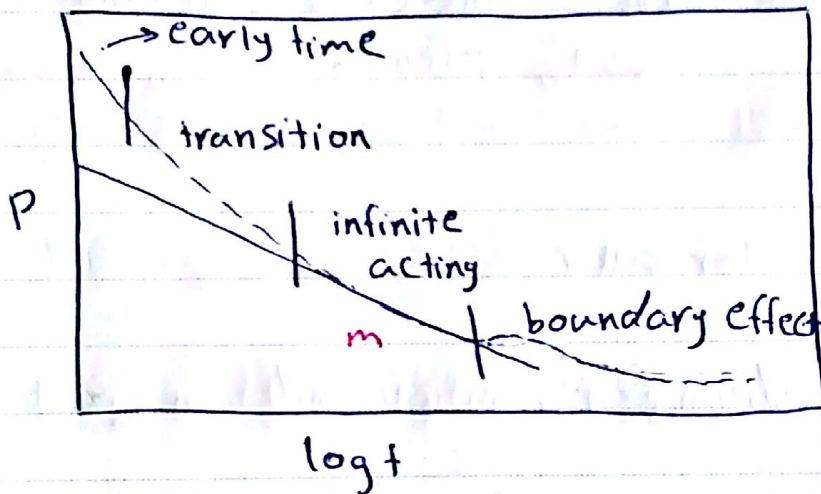 early time
transition
P
infinite
acting
m
boundary effect
log t